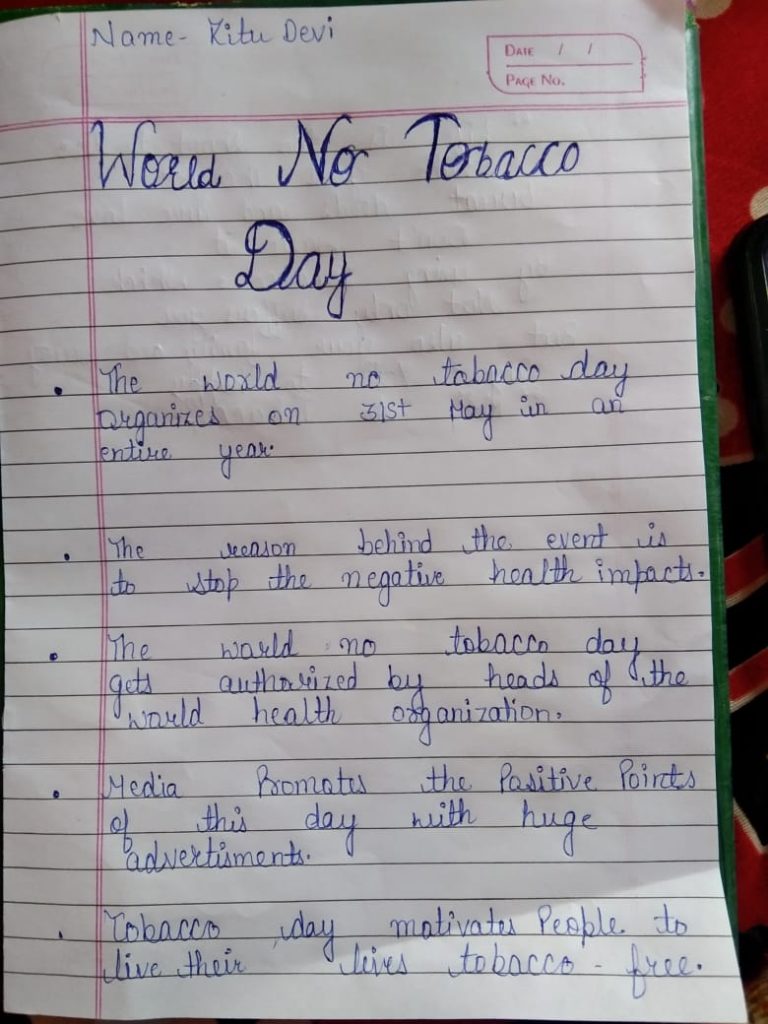 Name- Kitu Devi
DATE / /
PAGE NO.
World No Tobacco
Day
• The world no tobacco day
organizes on 31st May in an
entire year.
• The reason behind the event is
to stop the negative health impacts.
• The world no tobacco day
gets authorized by heads of the
world health organization.
• Media Promotes the Positive Points
of this day with huge
advertisments.
• Tobacco day motivates People to
live their lives tobacco - free.